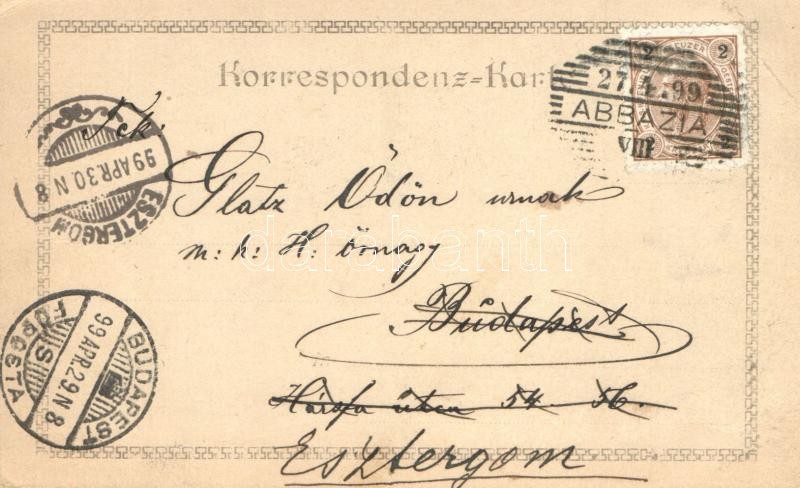 Korrespondenz-Karte
2 KREUZER 2
27.4.99
ABBAZIA
VIII
Tek.
Glatz Ödön urnak
m: k: H. őrnagy
darabanth
Budapest
Hársfa utca 54. 56.
Esztergom
ESZTERGOM
99 APR.30. N 8
BUDAPEST
99 APR.29 N 8
FŐPOSTA